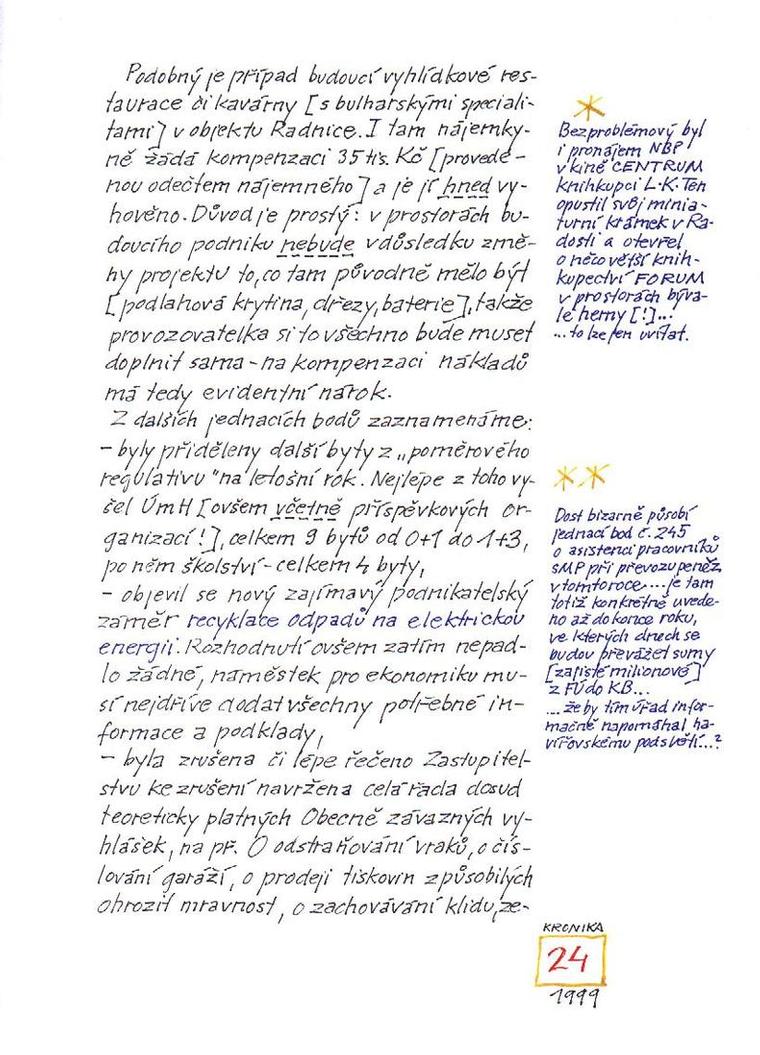 Podobný je případ budoucí vyhlídkové res-
taurace či kavárny [s bulharskými speciali-
tami] v objektu Radnice. I tam nájemky-
ně žádá kompenzaci 35 tis. Kč [provede-
nou odečtem nájemného] a je jí hned vy-
hověno. Důvod je prostý: v prostorách bu-
doucího podniku nebude v důsledku změ-
ny projektu to, co tam původně mělo být
[podlahová krytina, dřezy, baterie], takže
provozovatelka si to všechno bude muset
doplnit sama - na kompenzaci nákladů
má tedy evidentní nárok.
Z dalších jednacích bodů zaznamenáme:
- byly přiděleny další byty z „poměrového
regulativu" na letošní rok. Nejlépe z toho vy-
šel ÚmH [ovšem včetně příspěvkových or-
ganizací!], celkem 9 bytů od 0+1 do 1+3,
po něm školství - celkem 4 byty,
- objevil se nový zajímavý podnikatelský
záměr recyklace odpadů na elektrickou
energii. Rozhodnutí ovšem zatím nepad-
lo žádné, náměstek pro ekonomiku mu-
sí nejdříve dodat všechny potřebné in-
formace a podklady,
- byla zrušena či lépe řečeno Zastupitel-
stvu ke zrušení navržena celá řada dosud
teoreticky platných Obecně závazných vy-
hlášek, na př. O odstraňování vraků, o čís-
lování garáží, o prodeji tiskovin způsobilých
ohrozit mravnost, o zachovávání klidu, ze-
*
Bezproblémový byl
i pronájem NBP
v kině CENTRUM
knihkupci L.K. Ten
opustil svůj minia-
turní krámek v Ra-
dosti a otevřel
o něco větší knih-
kupectví FORUM
v prostorách býva-
lé herny [!]...
... to lze jen uvítat.
**
Dost bizarně působí
jednací bod č. 245
o asistenci pracovníků
SMP při převozu peněz
v tomto roce.... je tam
totiž konkrétně uvede-
no až do konce roku,
ve kterých dnech se
budou převážet sumy
[zajisté milionové]
z FÚ do KB...
... že by tím úřad infor-
mačně napomáhal ha-
vířovskému podsvětí...?
KRONIKA
24
1999